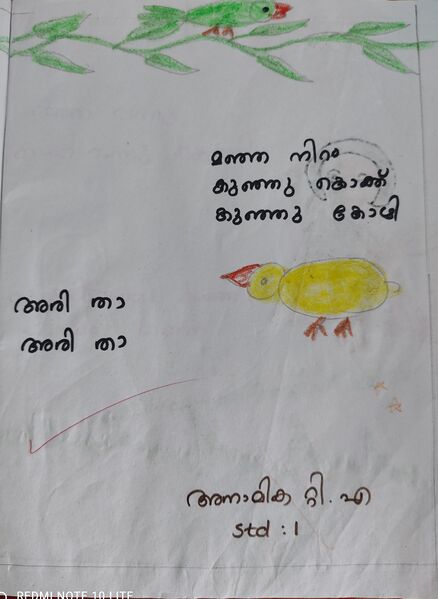 മഞ്ഞ നിറം
കുഞ്ഞു കൊക്ക്
കുഞ്ഞു കോഴി
അരി താ
അരി താ
അനാമിക റ്റി . എ
std : 1
REDMI NOTE 10 LITE